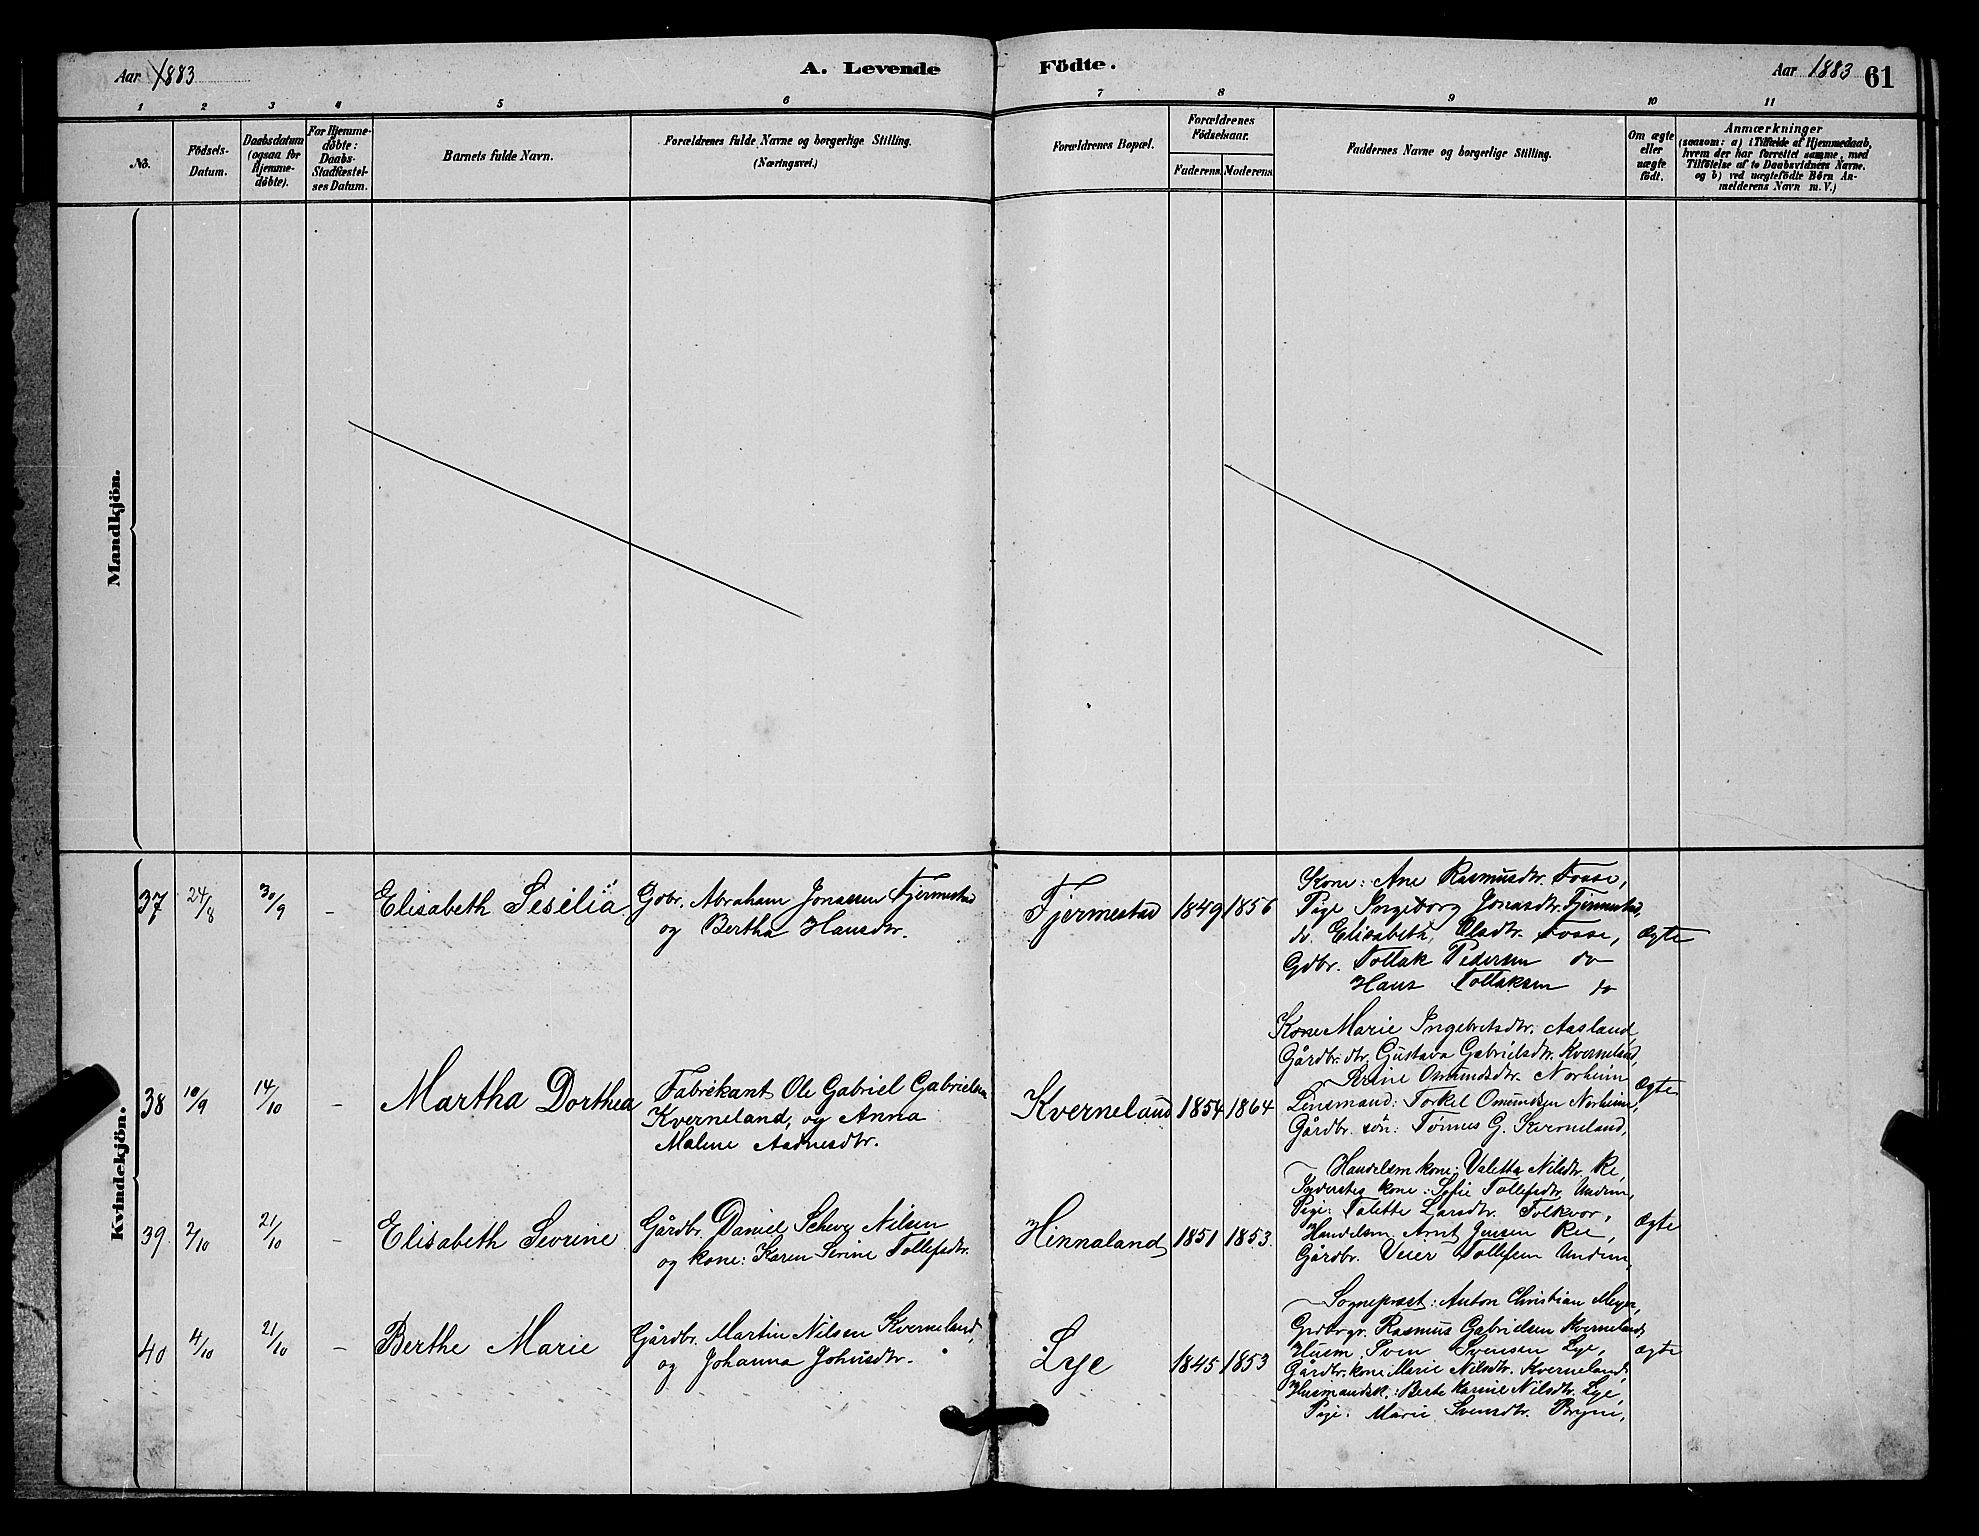 Aar 1883
A. Levende Födte.
Aar 1883 61
1 2 3 4 5 6 7 8 9 10 11
No.
Födsels-
Datum.
Daabsdatum
(ogsaa for
Hjemme-
døbte).
For Hjemme-
døbte:
Daabs-
Stadfæstel-
ses Datum.
Barnets fulde Navn.
Forældrenes fulde Navne og borgerlige Stilling.
(Næringsvei.)
Forældrenes Bopæl.
Forældrenes
Födselsaar.
Faderens. Moderens.
Faddernes Navne og borgerlige Stilling.
Om ægte
eller
uægte
födt.
Anmærkninger
(saasom: a) i Tilfælde af Hjemmedaab,
hvem der har forrettet samme, med
Tilföielse af to Daabsvidners Navne,
og b) ved uægtefödte Börn An-
melderens Navn m. V.)
Mandkjön.
Kvindekjön.
37 24/8 30/9 – Elisabeth Sesilia
Gdbr. Abraham Jonassen Fjermestad
og Bertha Hansdtr.
Fjermestad 1849 1856
Kone: Ane Rasmusdtr. Fosse,
Pige Ingeborg Jonasdtr. Fjermestad,
do. Elisabeth Olsdtr. Fosse,
Gdbr. Tollak Pedersen do
Hans Tollaksen do
Ægte
38 10/9 14/10 – Martha Dorthea
Fabrikant Ole Gabriel Gabrielsen
Kverneland, og Anna
Malene Aadnesdtr.
Kverneland 1854 1864
Kone Marie Ingebretsdtr. Aasland,
Gårdbr. dtr. Gustava Gabrielsdtr. Kverneland,
Serine Omundsdtr. Norheim
Lensmand: Torkel Omundsen Norheim,
Gårdbr. søn: Tønnes G. Kverneland,
Ægte
39. 2/10 21/10 – Elisabeth Sevrine
Gårdbr. Daniel Schevy Nilsen
og kone: Karen Serine Tollefsdtr.
Hinnaland 1851 1853.
Handelsm kone: Valetta Nilsdtr. Re,
kone: Sofie Tollefsdtr. Undem,
Pige: Talette Larsdtr. Folkvor,
Handelsm Arnt Jensen Ree,
Gårdbr. Veier Tollefsen Undem,
Ægte
40 4/10 21/10 – Berthe Marie
Gårdbr. Martin Nilsen Kverneland,
og Johanna Johnsdtr.
Lye 1845 1853
Sognepræst: Anton Christian Meyer,
Grdbrgr. Rasmus Gabrielsen Kverneland,
Husm. Sven Svensen Lye,
Gårdbr. kone Marie Nilsdtr. Kverneland,
Husmandsk.: Berte Karine Nilsdtr. Lye,
Pige: Marie Svensdtr. Bryne,
Ægte